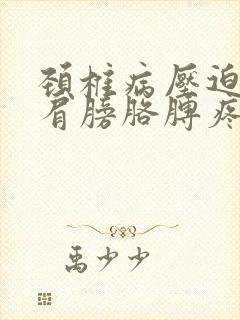 頸椎病壓迫
肩膀胳膊疼
禹少少